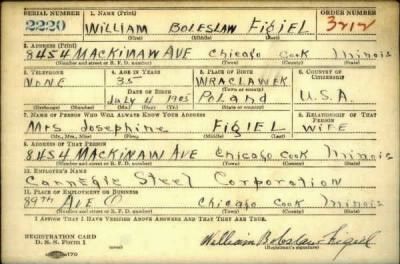 SERIAL NUMBER 1. NAME (Print) ORDER NUMBER
2220 WILLIAM BOLESLAW FIGIEL 3212
(First) (Middle) (Last)
2. ADDRESS (Print)
8454 MACKINAW AVE Chicago Cook Illinois
(Number and street or R. F. D. number) (Town) (County) (State)
3. TELEPHONE 4. AGE IN YEARS 5. PLACE OF BIRTH 6. COUNTRY OF CITIZENSHIP
NONE 35 WRACLAWEK
DATE OF BIRTH (Town or county)
July 4 1905 Poland U.S.A.
(Exchange) (Number) (Mo.) (Day) (Yr.) (State or country)
7. NAME OF PERSON WHO WILL ALWAYS KNOW YOUR ADDRESS 8. RELATIONSHIP OF THAT PERSON
Mrs Josephine FIGIEL WIFE
(Mr., Mrs., Miss) (First) (Middle) (Last)
9. ADDRESS OF THAT PERSON
8454 MACKINAW AVE Chicago Cook Illinois
(Number and street or R. F. D. number) (Town) (County) (State)
10. EMPLOYER'S NAME
Carnegie Steel Corporation
11. PLACE OF EMPLOYMENT OR BUSINESS
89th AVE Chicago Cook Illinois
(Number and street or R. F. D. number) (Town) (County) (State)
I AFFIRM THAT I HAVE VERIFIED ABOVE ANSWERS AND THAT THEY ARE TRUE.
REGISTRATION CARD
D. S. S. Form 1 William Boleslaw Figiel
(over) (Registrant's signature)